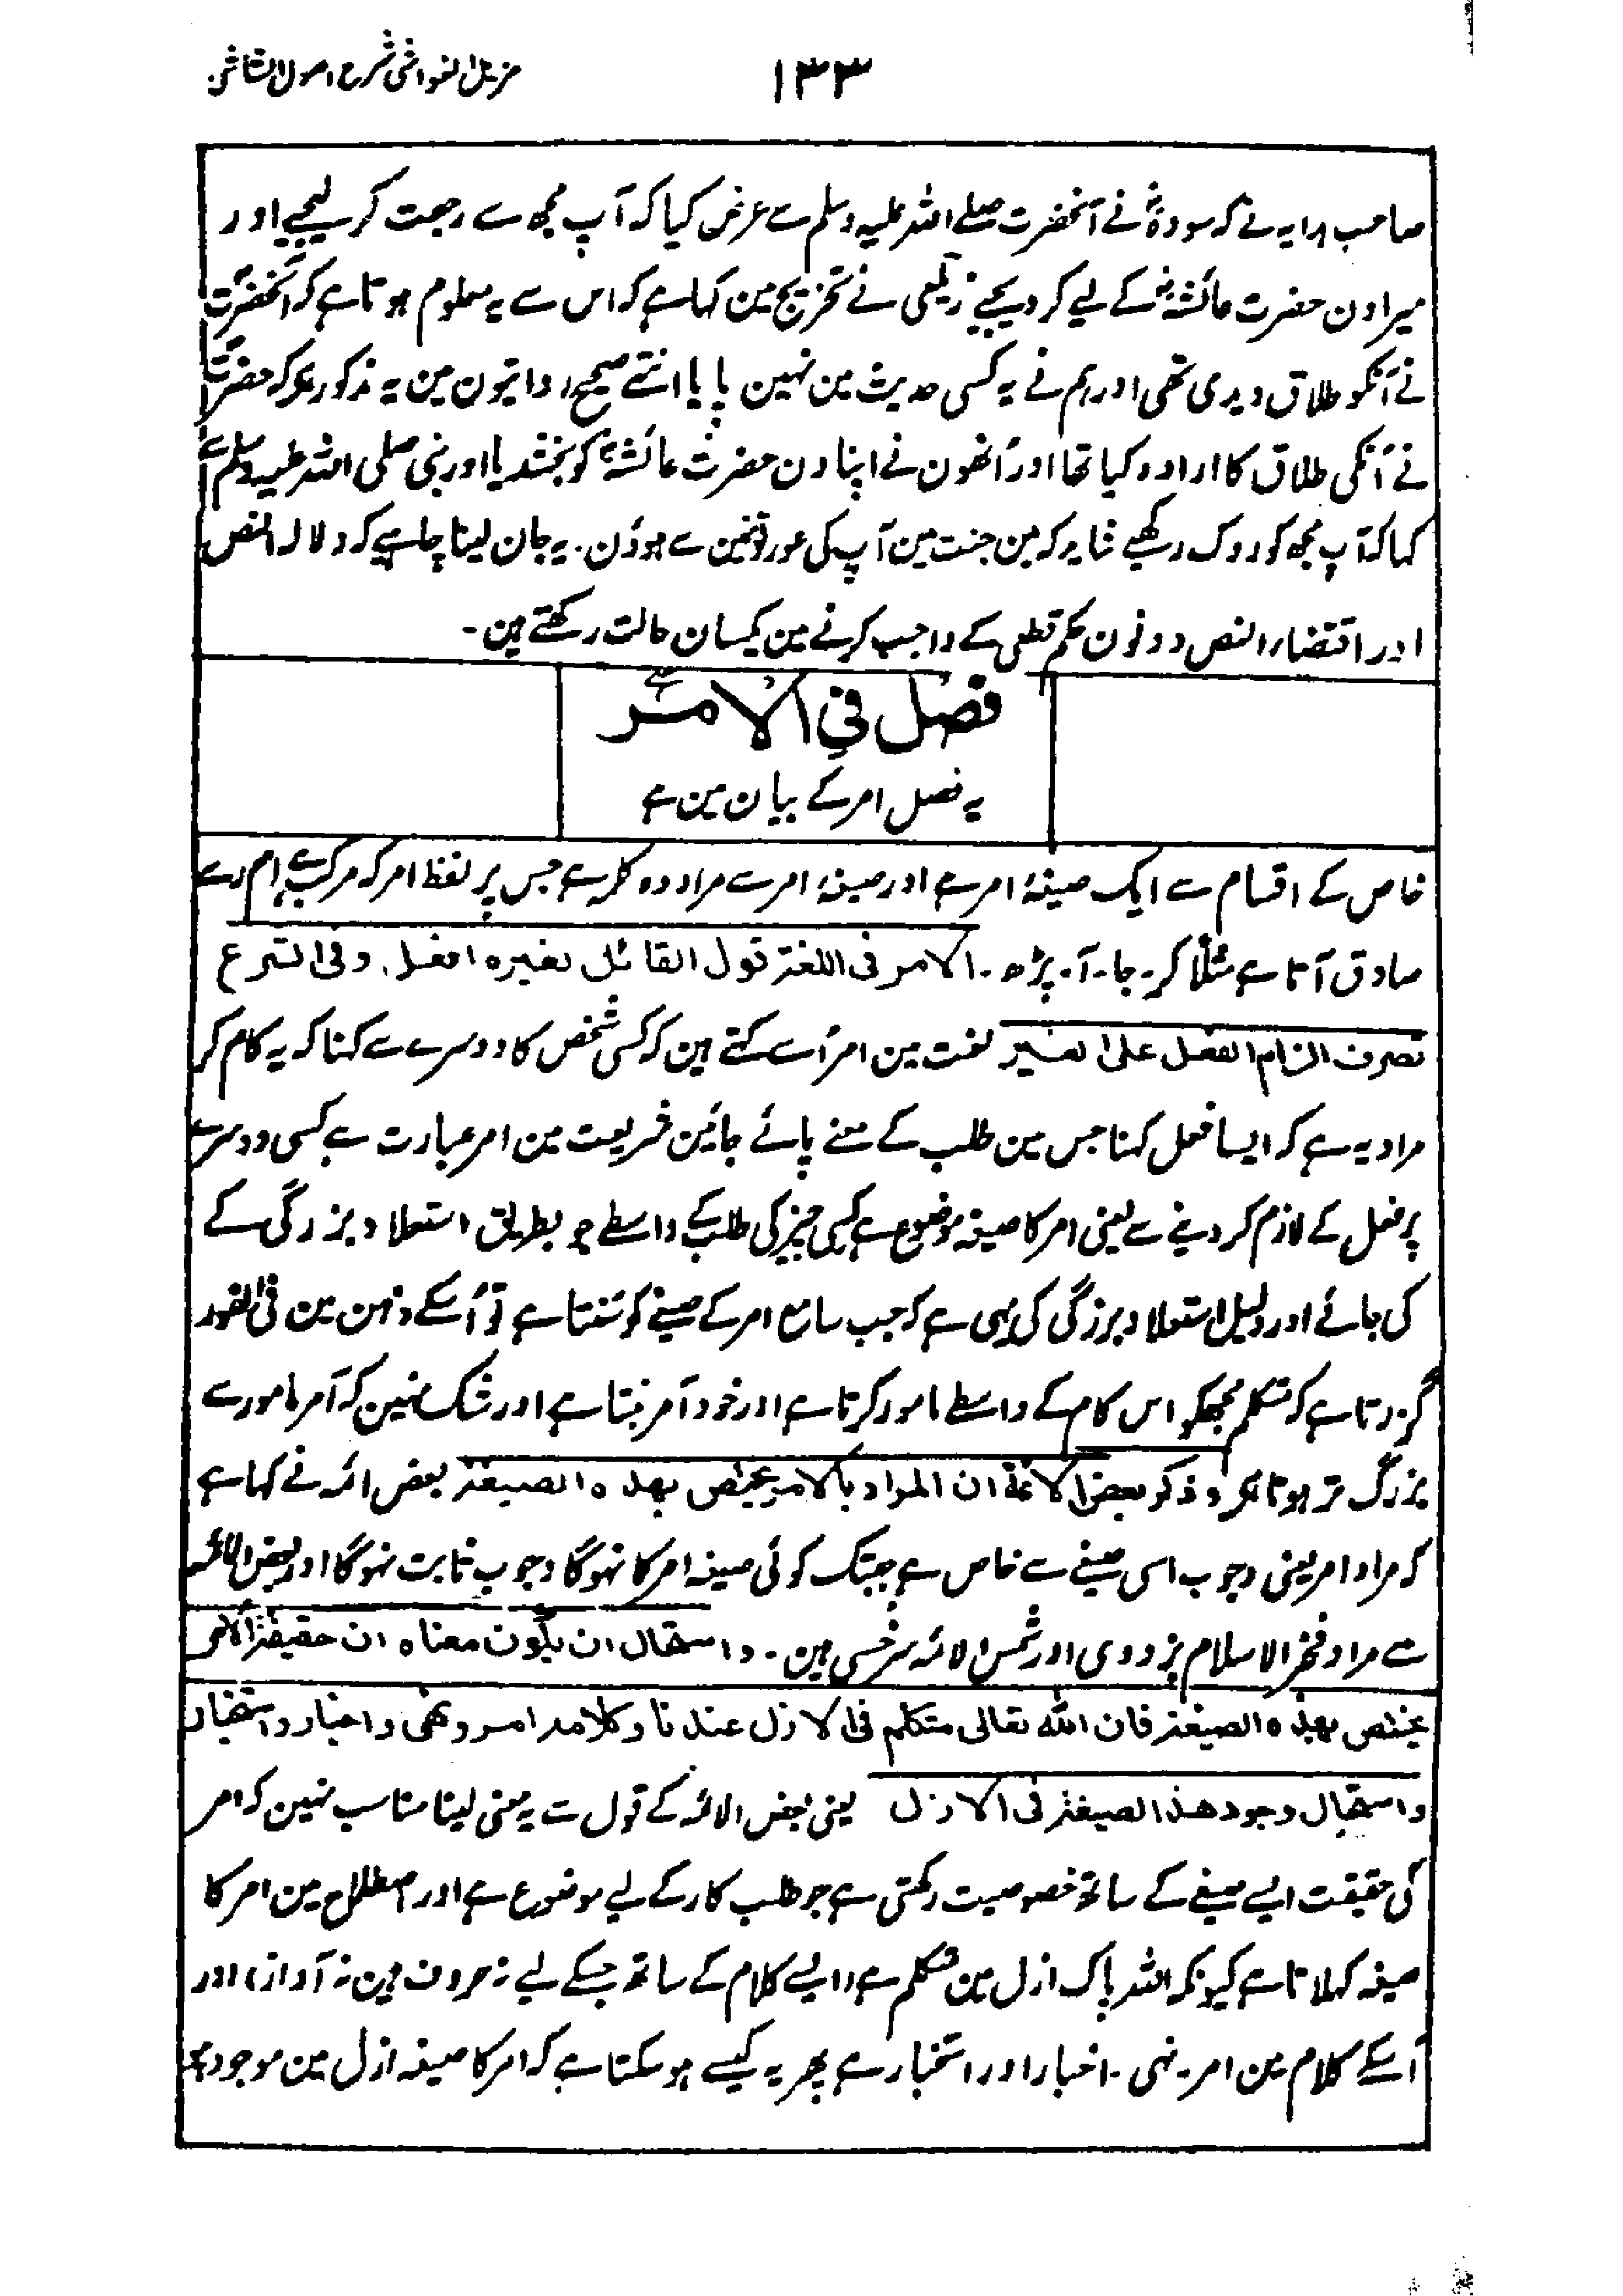 مزیل الغواشی شرح اصول الشاشی
۱۳۳
صاحب ہدایہ نے کہ سودہؓ نے آنحضرت صلے اللہ علیہ وسلم سے عرض کیا کہ آپ مجھ سے رجعت کر لیجیے اور
میرا دن حضرت عائشہؓ کے لیے کر دیجیے زیلعی نے تخریج مین کہا ہے کہ اس سے یہ معلوم ہوتا ہے کہ آنحضرتؐ
نے اُنکو طلاق دیدی تھی اور ہم نے یہ کسی حدیث مین نہین پایا انتہے صحیح روایتون مین یہ مذکور ہے کہ حضرتؐ
نے اُنکی طلاق کا ارادہ کیا تھا اور اُنھون نے اپنا دن حضرت عائشہؓ کو بخشدیا اور نبی صلی اللہ علیہ وسلم سے
کہا کہ آپ مجھ کو روک رکھیے شاید کہ مین جنت مین آپ کی عورتونمین سے ہوؤن۔ یہ جان لینا چاہیے کہ دلالۃ النص
اور اقتضاء النص دونون حکم قطعی کے واجب کرنے مین یکسان حالت رکھتے ہین۔
فصل فی الامر
یہ فصل امر کے بیان مین ہے
خاص کے اقسام سے ایک صیغۂ امر ہے اور صیغۂ امر سے مراد وہ کلمہ ہے جس پر لفظ امر کہ مرکب ہے ا م ر سے
صادق آتا ہے مثلاً کر۔ جا۔ آ۔ پڑھ۔ الامر فی اللغۃ قول القائل لغیرہ افعل۔ وفی الشرع
تصرف الزام الفعل علی الغیر لغت مین امر اُسے کہتے ہین کہ کسی شخص کا دوسرے سے کہنا کہ یہ کام کر
مراد یہ ہے کہ ایسا فعل کہنا جس مین طلب کے معنے پائے جائین شریعت مین امر عبارت ہے کسی دوسرے
پر فعل کے لازم کر دینے سے یعنی امر کا صیغہ موضوع ہے کسی چیز کی طلب کے واسطے جو بطریق استعلا و بزرگی کے
کی جائے اور دلیل استعلا و بزرگی کی یہی ہے کہ جب سامع امر کے صیغے کو سُنتا ہے تو اُسکے ذہن مین فی الفور
گزرتا ہے کہ متکلم مجھکو اس کام کے واسطے مامور کرتا ہے اور خود آمر بنتا ہے اور شک نہین کہ آمر مامور سے
بزرگ تر ہوتا ہے وذکر بعض الائمۃ ان المراد بالامر یختص بھذہ الصیغۃ بعض ائمہ نے کہا ہے
کہ مراد امر یعنی وجوب اسی صیغے سے خاص ہے جبتک کوئی صیغہ امر کا نہوگا وجوب ثابت نہوگا اور بعض الائمہ
سے مراد فخر الاسلام بزدوی اور شمس الائمہ سرخسی ہین۔ واستحال ان یکون معناہ ان حقیقۃ الامر
یختص بھذہ الصیغۃ فان اللہ تعالی متکلم فی الازل عندنا وکلامہ امر ونھی واخبار واستخبار
واستحال وجود ھذہ الصیغۃ فی الازل یعنی بعض الائمہ کے قول سے یہ معنی لینا مناسب نہین کہ امر
کی حقیقت ایسے صیغے کے ساتھ خصوصیت رکھتی ہے جو طلب کار کے لیے موضوع ہے اور اصطلاح مین امر کا
صیغہ کہلاتا ہے کیونکہ اللہ پاک ازل مین متکلم ہے (ایسے کلام کے ساتھ جسکے لیے نہ حروف ہین نہ آواز) اور
اُسکے کلام مین امر۔ نہی۔ اخبار اور استخبار ہے پھر یہ کیسے ہو سکتا ہے کہ امر کا صیغہ ازل مین موجود ہو